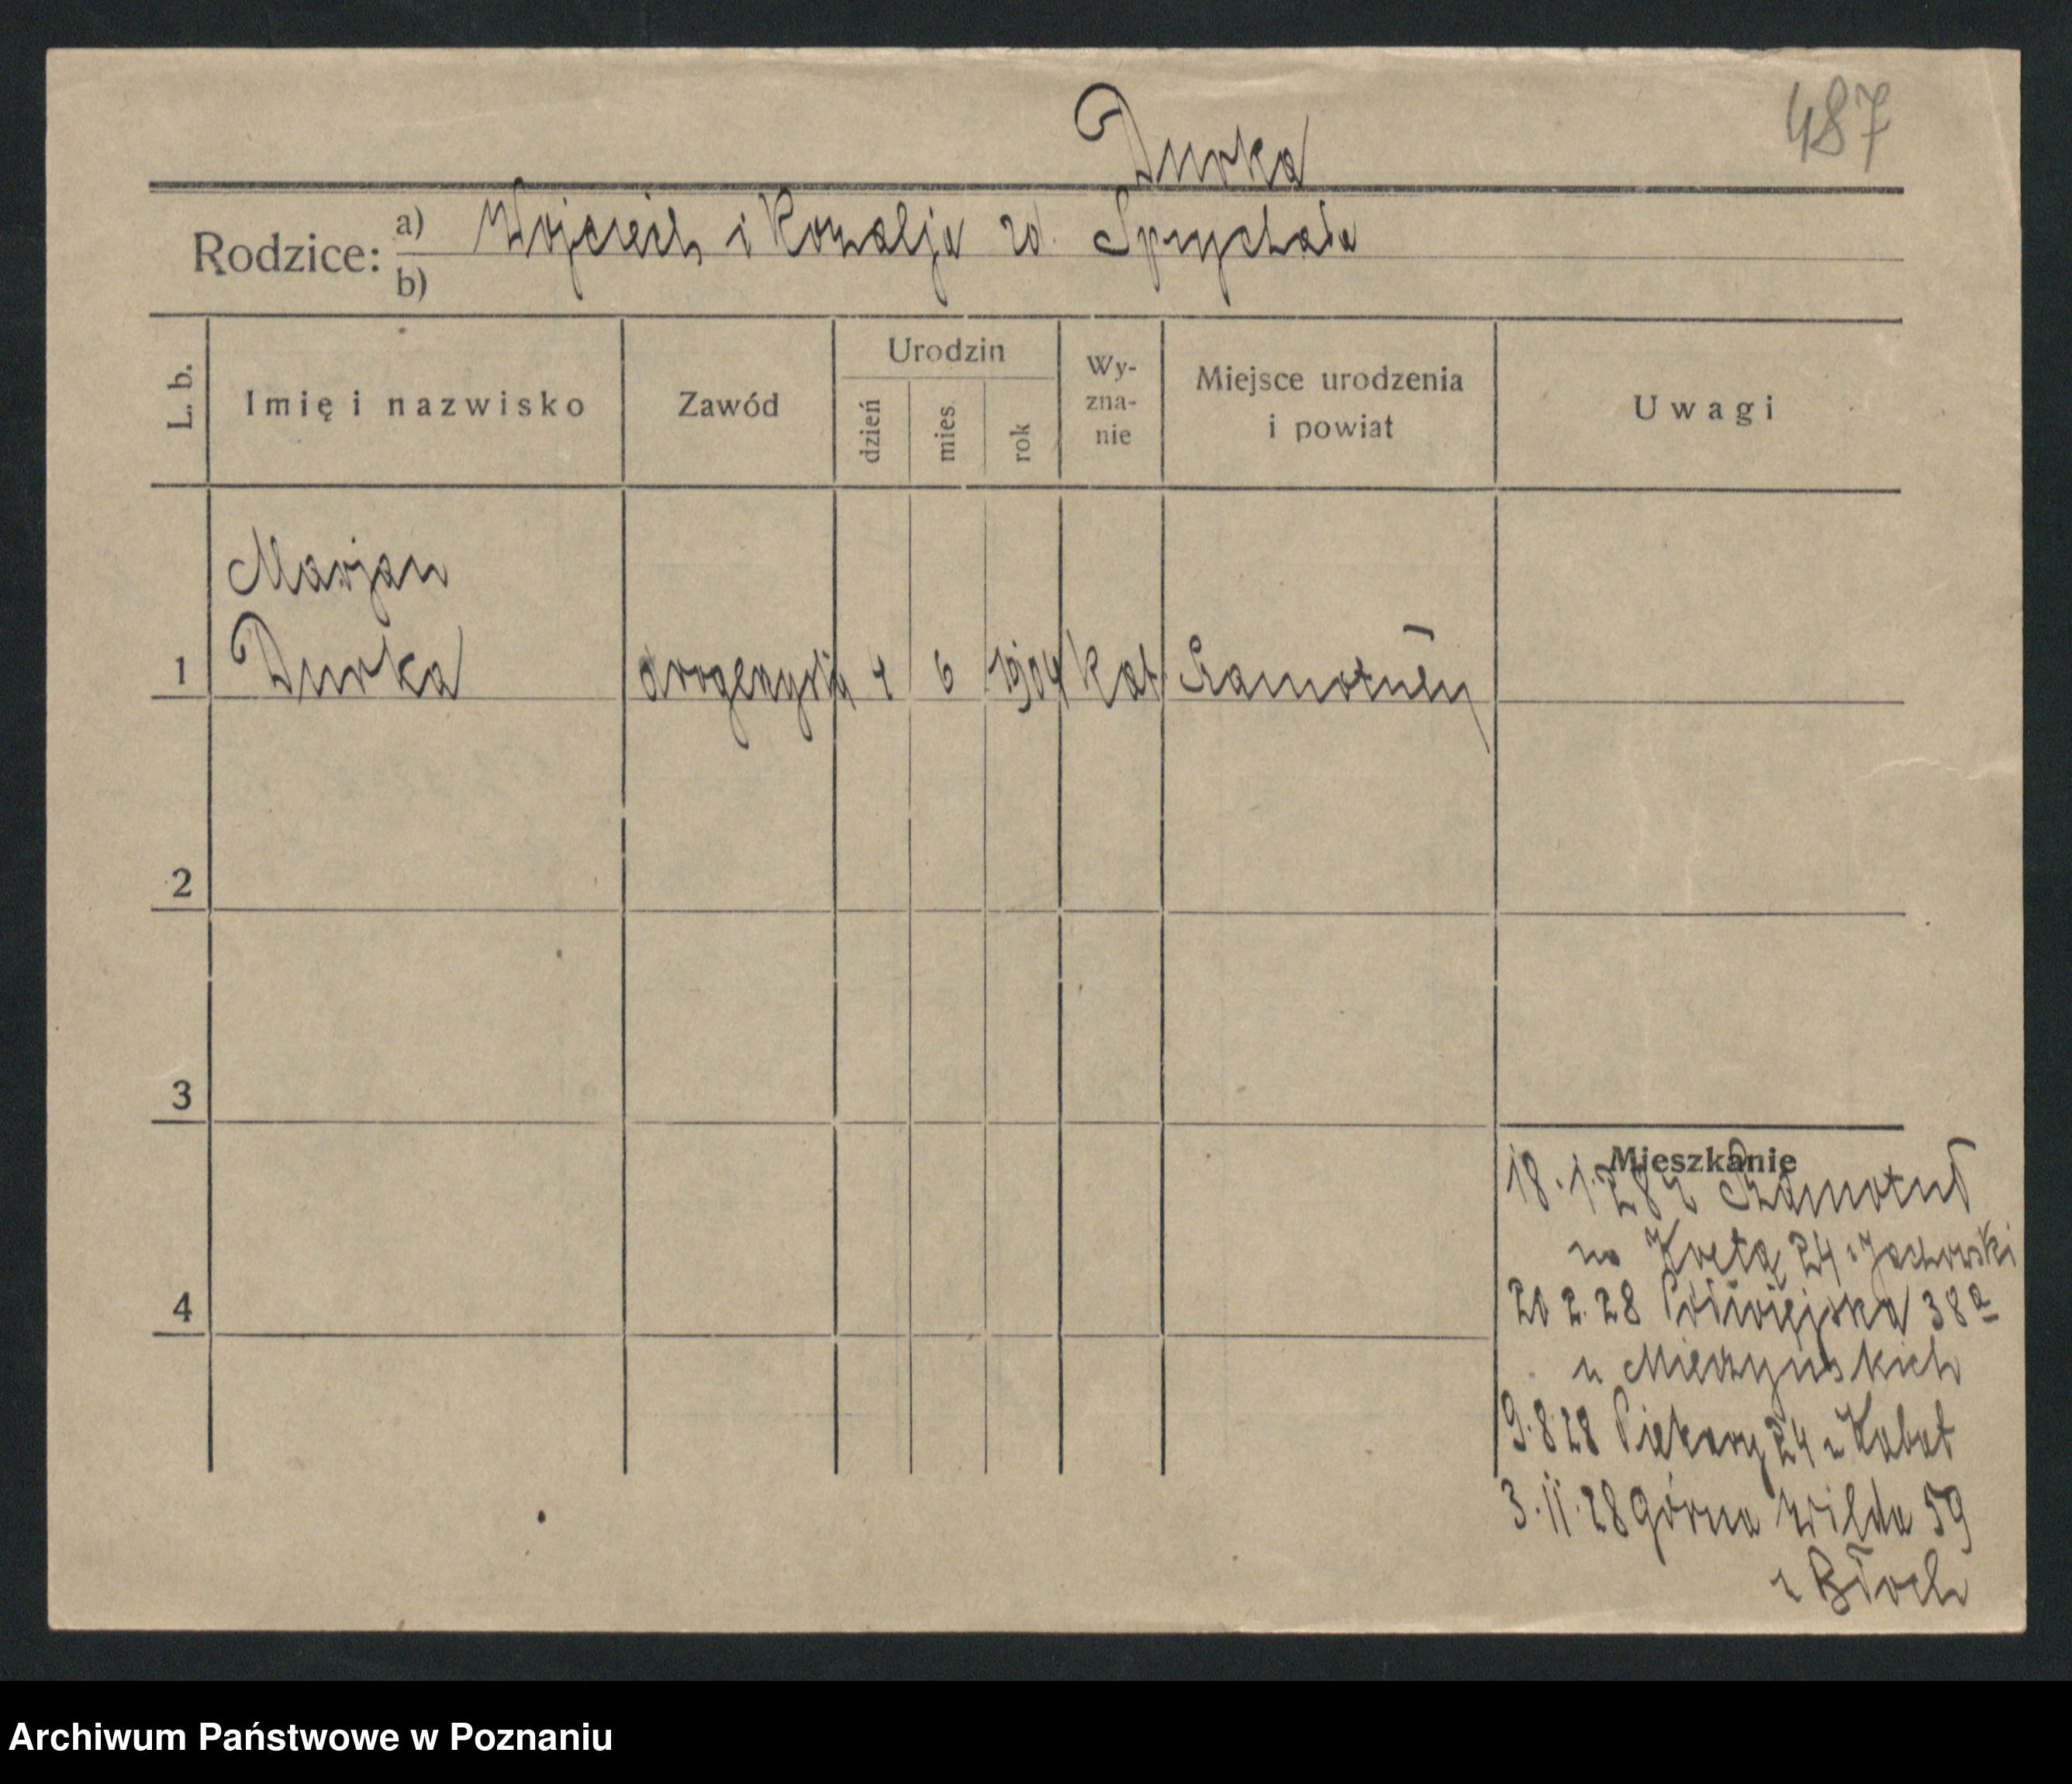 487
Durka
Rodzice: a) Wojciech i Rozalja zd. Spychała
b)
L. b. Imię i nazwisko Zawód Urodzin dzień mies. rok Wy-zna-nie Miejsce urodzenia i powiat Uwagi
Marjan
1 Durka drogerzysta 4 6 1904 kat. Szamotuły
2
3
4
Mieszkanie
18.1.28 z Szamotuł
na Kręta 24 Jachowski
20 2.28 Półwiejska 38a
u Mierzyńskich
9.8.28 Piekary 24 u Kabat
3.11.28 Górna Wilda 59
u Błoch
Archiwum Państwowe w Poznaniu